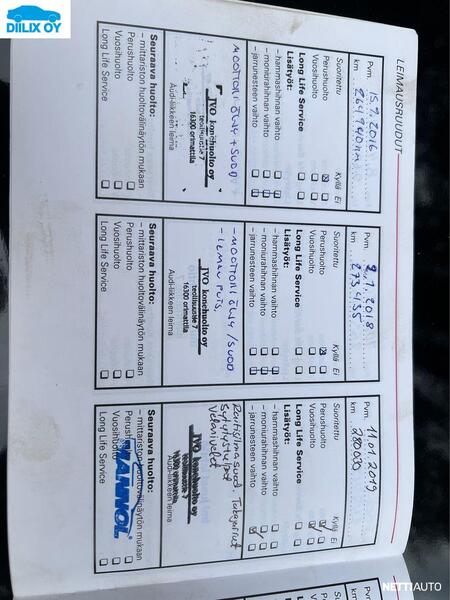 DIILIX OY
LEIMAUSRUUDUT
Pvm. 15.7.2016
km 264990km
Suoritettu Kyllä Ei
Perushuolto
Vuosihuolto
Long Life Service
Lisätyöt:
– hammashihnan vaihto
– moniurahihnan vaihto
– jarrunesteen vaihto
MOOTTORI ÖLJY + SUOD
JVO konehuolto oy
teollisuustie 7
16300 orimattila
Audi-liikkeen leima
Seuraava huolto:
– mittariston huoltovälinäytön mukaan
Perushuolto
Vuosihuolto
Long Life Service
Pvm. 2.1.2018
km 273435
Suoritettu Kyllä Ei
Perushuolto
Vuosihuolto
Long Life Service
Lisätyöt:
– hammashihnan vaihto
– moniurahihnan vaihto
– jarrunesteen vaihto
- MOOTTORI ÖLJY / SUOD
- ILMAN PUTS.
JVO konehuolto oy
teollisuustie 7
16300 orimattila
Audi-liikkeen leima
Seuraava huolto:
– mittariston huoltovälinäytön mukaan
Perushuolto
Vuosihuolto
Long Life Service
Pvm. 11.01.2019
km 280000
Suoritettu Kyllä Ei
Perushuolto
Vuosihuolto
Long Life Service
Lisätyöt:
– hammashihnan vaihto
– moniurahihnan vaihto
– jarrunesteen vaihto
Raitisilmasuod. Takajarrut
Sytytystulpat
Vetonivelet
JVO konehuolto oy
teollisuustie 7
16300 orimattila
Audi-liikkeen leima
Seuraava huolto:
– mittariston huoltovälinäytön mukaan
Perushuolto
Vuosihuolto
Long Life Service
MANNOL
Pvm.
km
NETTIAUTO